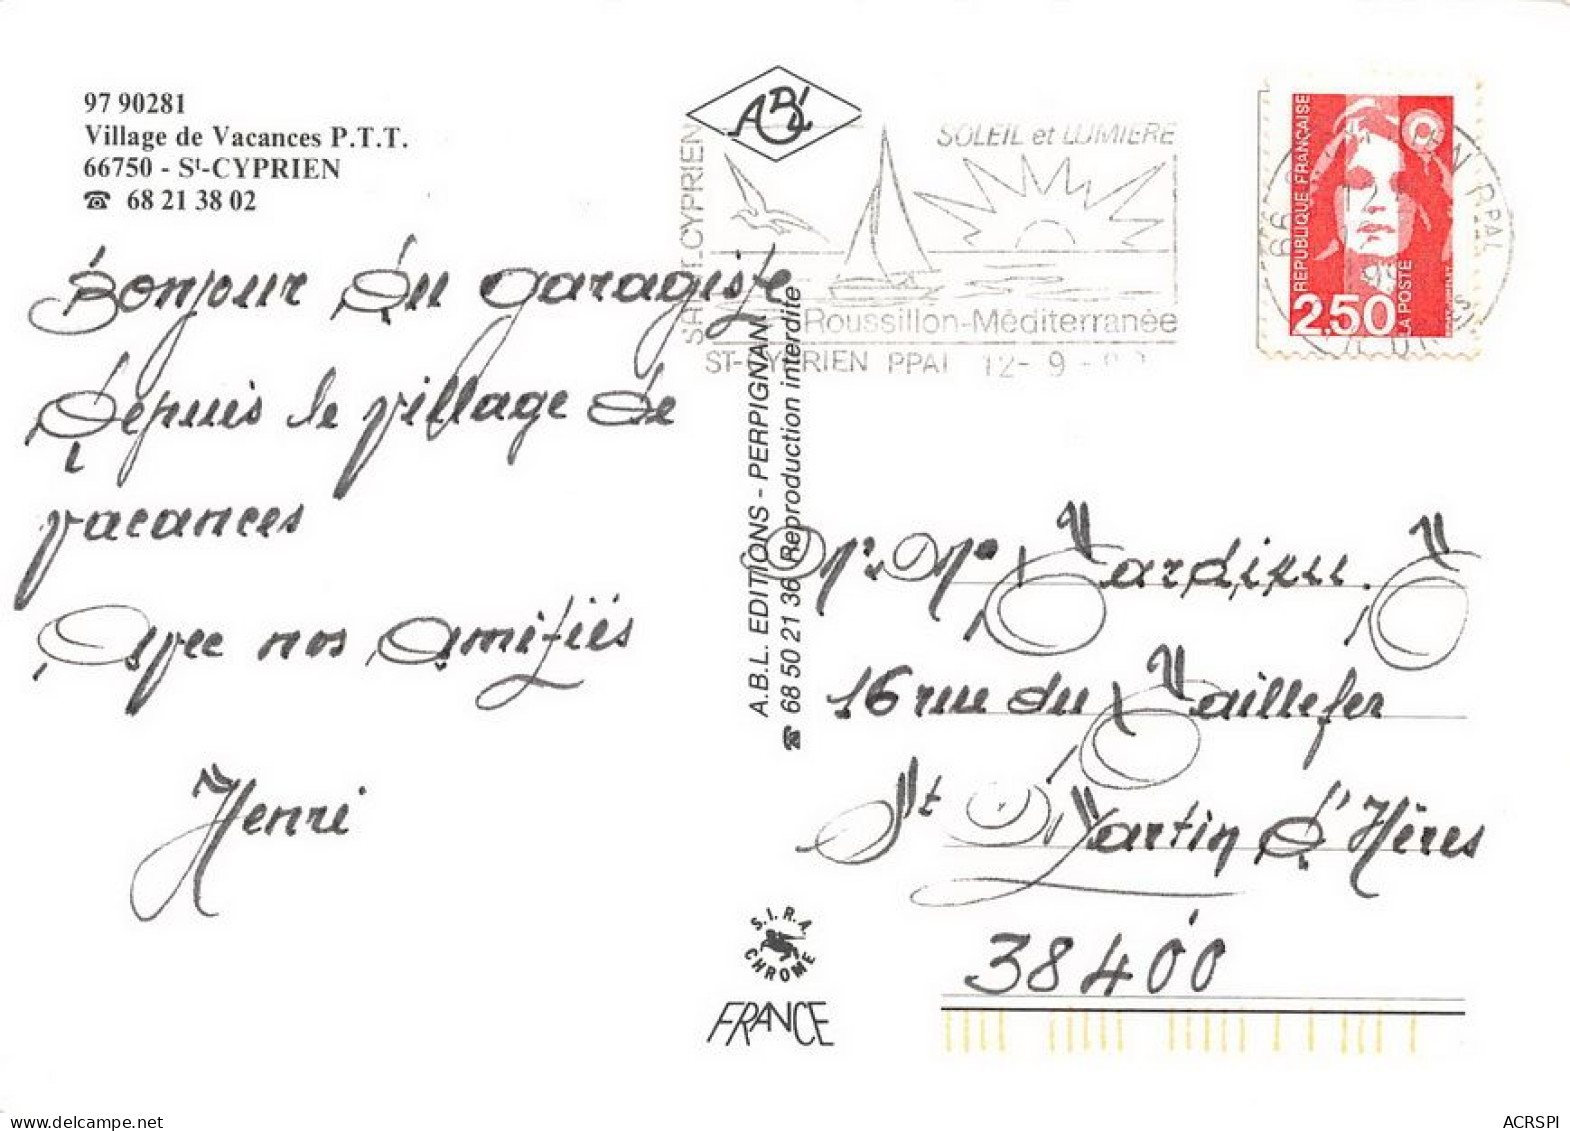 97 90281
Village de Vacances P.T.T.
66750 - St-CYPRIEN
☎ 68 21 38 02
Bonjour du garagiste
depuis le village de
vacances
Avec nos amitiés
Henri
ABL
SOLEIL et LUMIERE
Roussillon-Méditerranée
ST-CYPRIEN PPAL 12-9-
A.B.L. EDITIONS - PERPIGNAN
☎ 68 50 21 36 Reproduction interdite
S.I.R.A.
CHROME
FRANCE
REPUBLIQUE FRANÇAISE
2,50
LA POSTE
16 rue du Taillefer
St Martin d'Hères
38400
ACRSPI